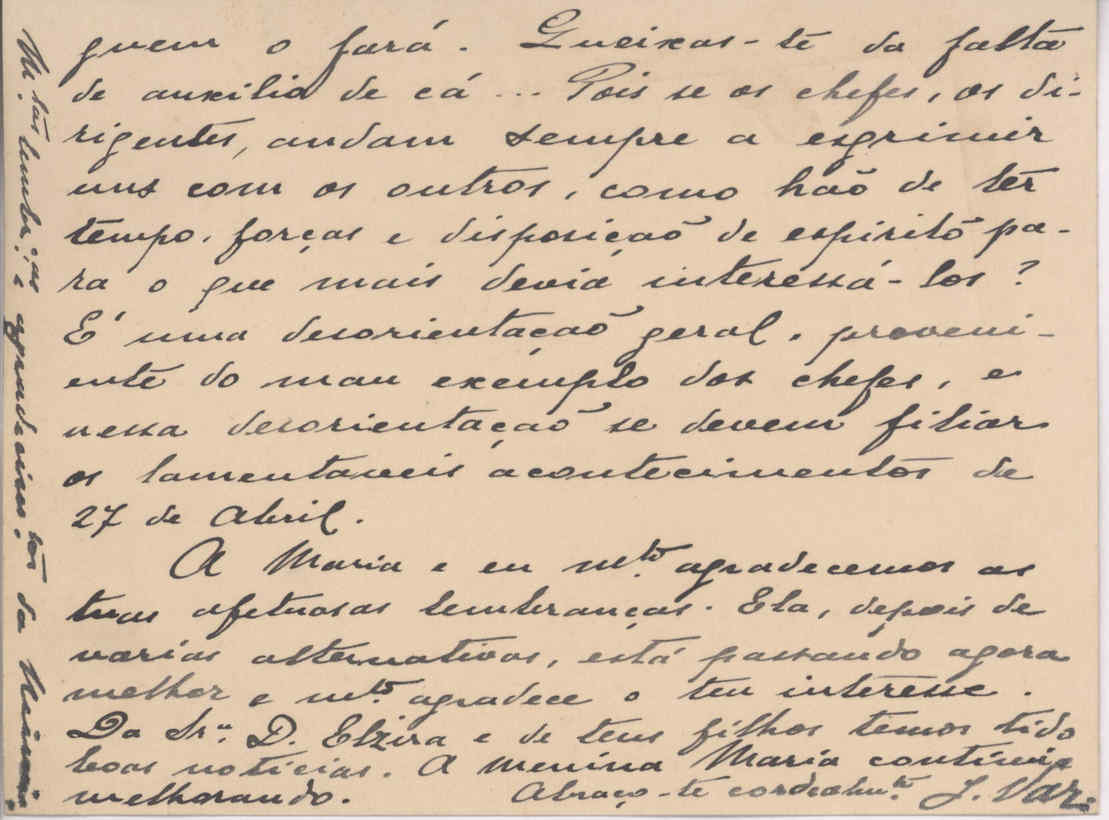 guem o fará. Queixas-te da falta
de auxilio de cá ... Pois se os chefes, os di-
rigentes, andam sempre a esgrimir
uns com os outros, como hão de ter
tempo, forças e disposição de espirito pa-
ra o que mais devia interessá-los?
É uma desorientação geral, proveni-
ente do mau exemplo dos chefes, e
nessa desorientação se devem filiar
os lamentaveis acontecimentos de
27 de Abril.
A Maria e eu mto. agradecemos as
tuas afetuosas lembranças. Ela, depois de
varias alternativas, está passando agora
melhor e mto. agradece o teu interesse.
Da Sra. D. Elzira e de teus filhos temos tido
boas noticias. A menina Maria continúa
melhorando. Abraço-te cordealmte. J. Vaz.
M.tas lembr.ças e agradecimtos da Maria.